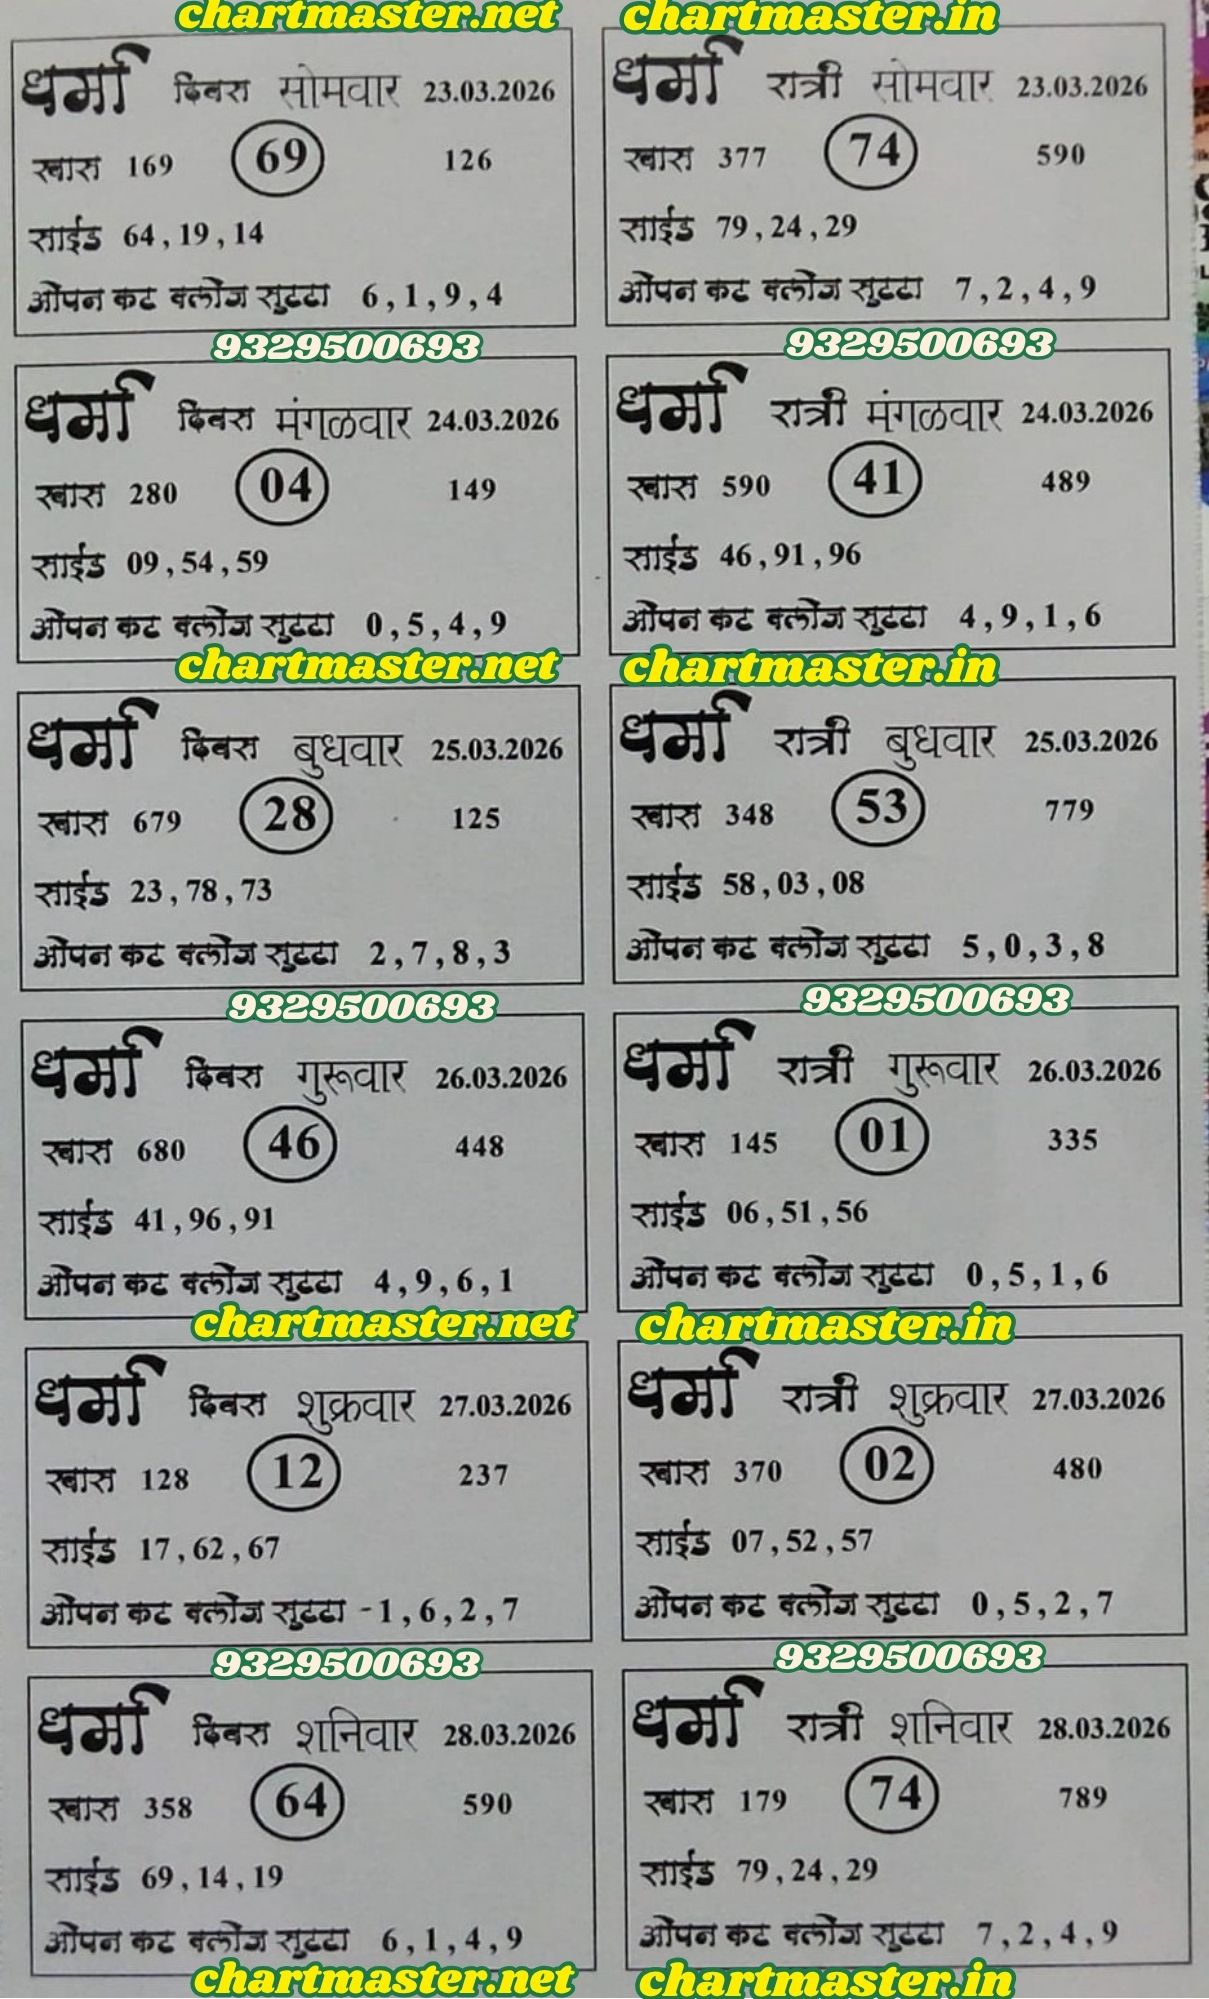 chartmaster.net chartmaster.in
धर्मा दिवस सोमवार 23.03.2026
खास 169 69 126
साईड 64 , 19 , 14
ओपन कट क्लोज सुटटा 6 , 1 , 9 , 4
धर्मा रात्री सोमवार 23.03.2026
खास 377 74 590
साईड 79 , 24 , 29
ओपन कट क्लोज सुटटा 7 , 2 , 4 , 9
9329500693 9329500693
धर्मा दिवस मंगळवार 24.03.2026
खास 280 04 149
साईड 09 , 54 , 59
ओपन कट क्लोज सुटटा 0 , 5 , 4 , 9
धर्मा रात्री मंगळवार 24.03.2026
खास 590 41 489
साईड 46 , 91 , 96
ओपन कट क्लोज सुटटा 4 , 9 , 1 , 6
chartmaster.net chartmaster.in
धर्मा दिवस बुधवार 25.03.2026
खास 679 28 125
साईड 23 , 78 , 73
ओपन कट क्लोज सुटटा 2 , 7 , 8 , 3
धर्मा रात्री बुधवार 25.03.2026
खास 348 53 779
साईड 58 , 03 , 08
ओपन कट क्लोज सुटटा 5 , 0 , 3 , 8
9329500693 9329500693
धर्मा दिवस गुरूवार 26.03.2026
खास 680 46 448
साईड 41 , 96 , 91
ओपन कट क्लोज सुटटा 4 , 9 , 6 , 1
धर्मा रात्री गुरूवार 26.03.2026
खास 145 01 335
साईड 06 , 51 , 56
ओपन कट क्लोज सुटटा 0 , 5 , 1 , 6
chartmaster.net chartmaster.in
धर्मा दिवस शुक्रवार 27.03.2026
खास 128 12 237
साईड 17 , 62 , 67
ओपन कट क्लोज सुटटा - 1 , 6 , 2 , 7
धर्मा रात्री शुक्रवार 27.03.2026
खास 370 02 480
साईड 07 , 52 , 57
ओपन कट क्लोज सुटटा 0 , 5 , 2 , 7
9329500693 9329500693
धर्मा दिवस शनिवार 28.03.2026
खास 358 64 590
साईड 69 , 14 , 19
ओपन कट क्लोज सुटटा 6 , 1 , 4 , 9
धर्मा रात्री शनिवार 28.03.2026
खास 179 74 789
साईड 79 , 24 , 29
ओपन कट क्लोज सुटटा 7 , 2 , 4 , 9
chartmaster.net chartmaster.in